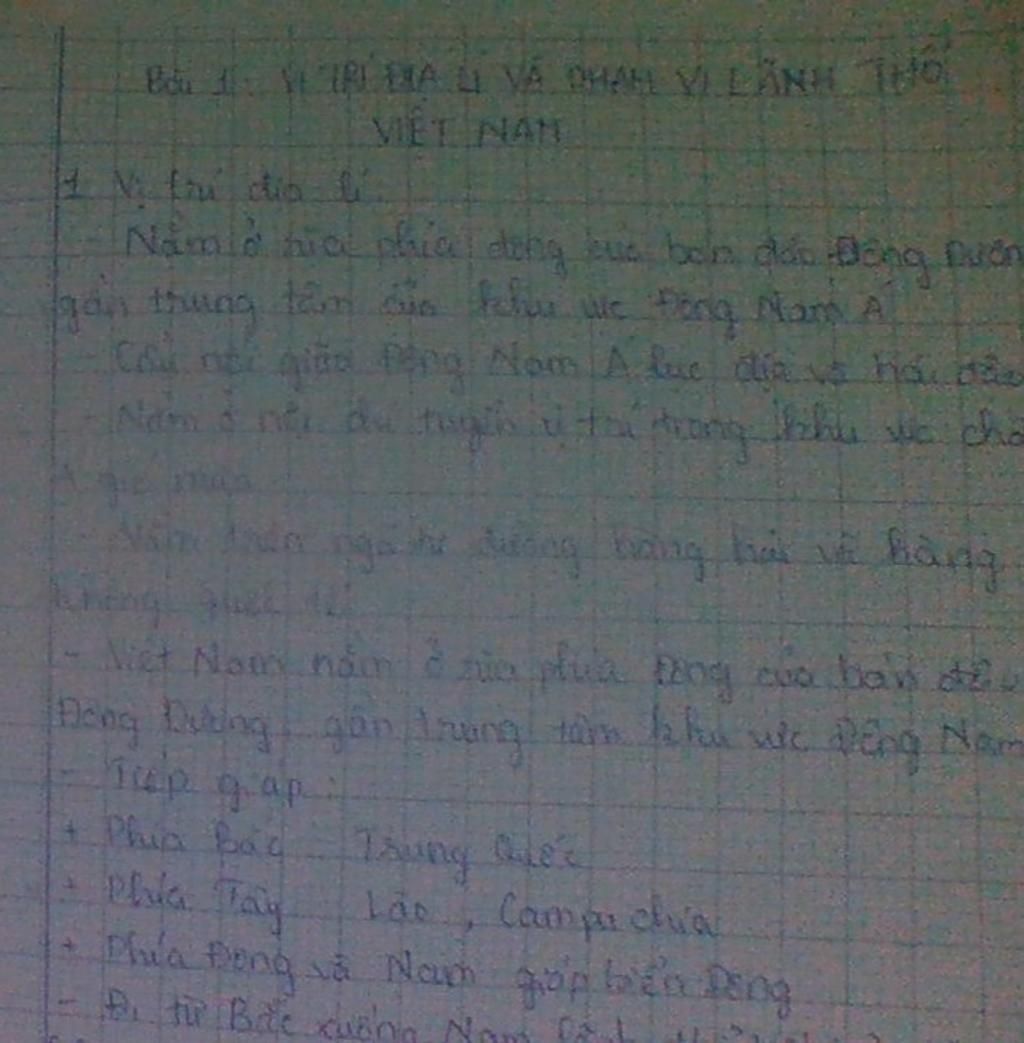 Bài 1: VỊ TRÍ ĐỊA LÍ VÀ PHẠM VI LÃNH THỔ
VIỆT NAM
1 Vị trí địa lí
- Nằm ở rìa phía đông của bán đảo Đông Dươn
gần trung tâm của khu vực Đông Nam Á
- Cầu nối giữa Đông Nam Á lục địa và hải đảo
- Nằm ở nội trong khu vực châ
Á gió mùa
- Nằm trên ngã tư đường hàng hải và hàng
không quốc tế
- Việt Nam nằm ở rìa phía Đông của bán đảo
Đông Dương, gần trung tâm khu vực Đông Nam
- Tiếp giáp:
+ Phía Bắc Trung Quốc
+ Phía Tây Lào, Campuchia
+ Phía Đông và Nam giáp biển Đông
- Đi từ Bắc xuống Nam